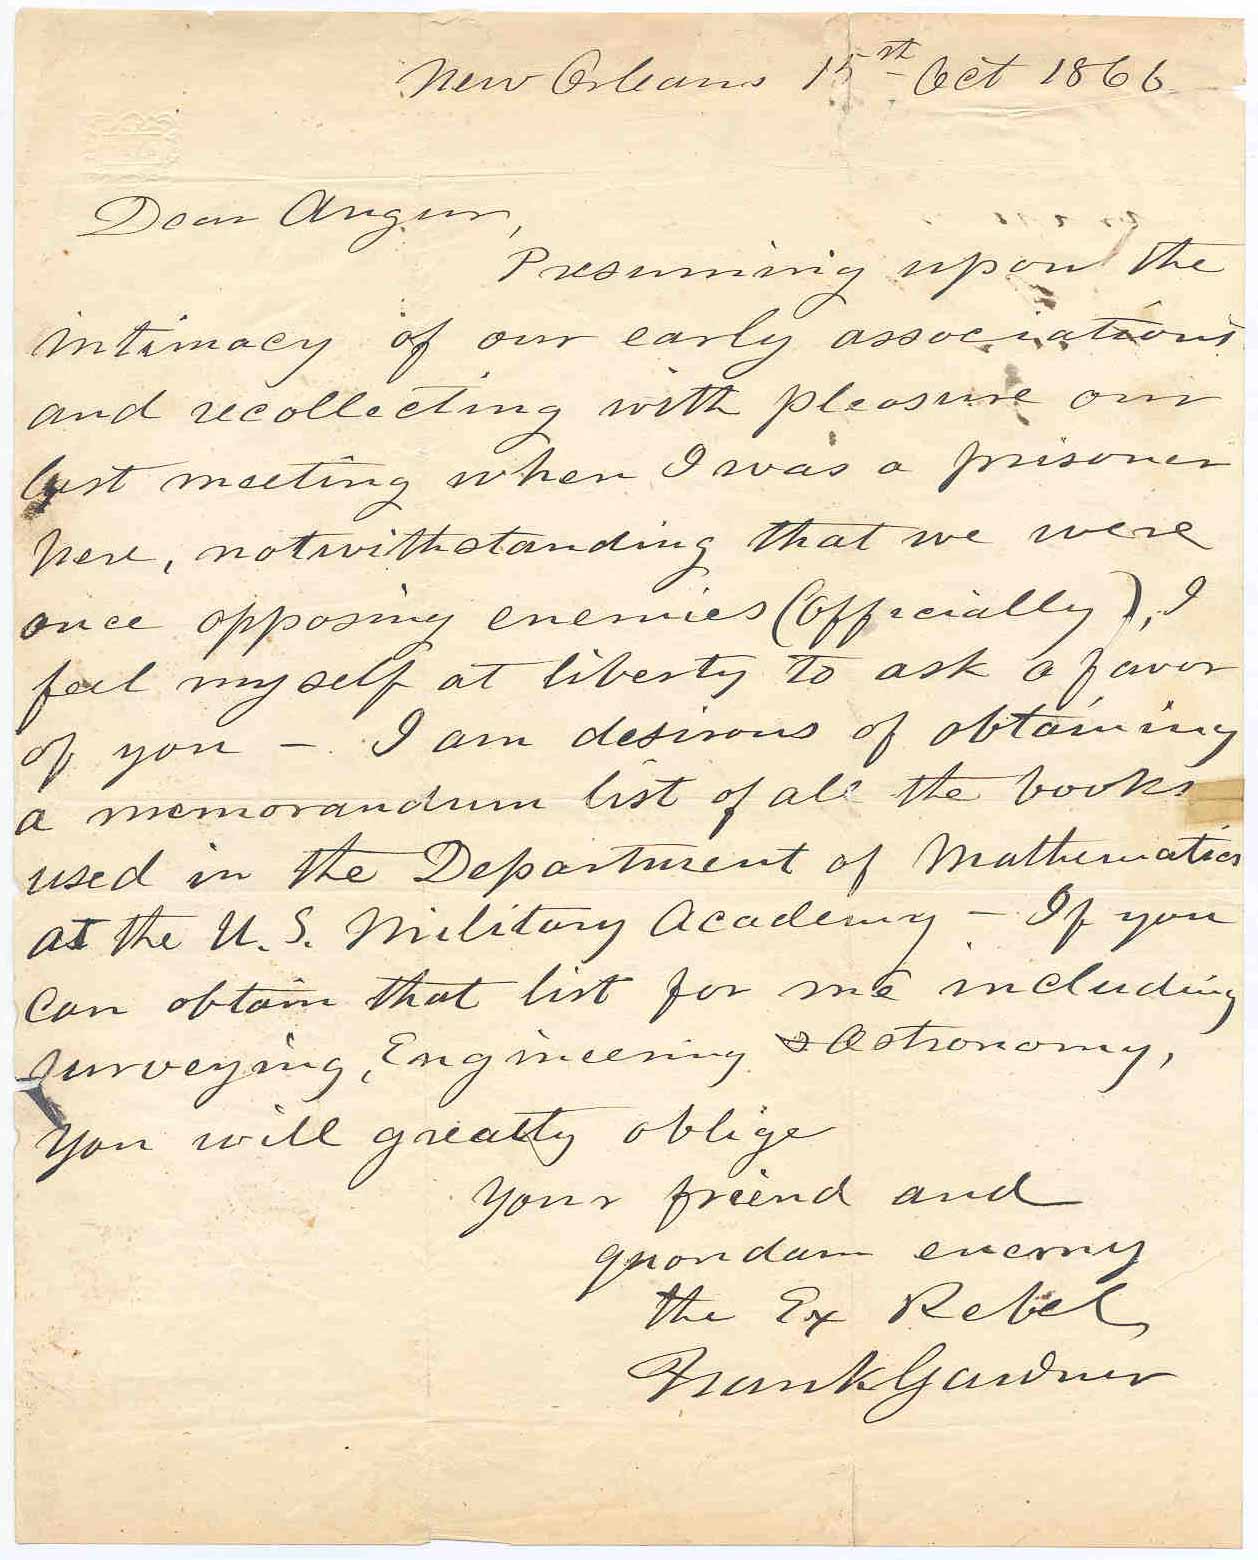 New Orleans 15th Oct 1866
Dear Angur,
Presuming upon the
intimacy of our early associations
and recollecting with pleasure our
last meeting when I was a prisoner
here, notwithstanding that we were
once opposing enemies (officially), I
feel myself at liberty to ask a favor
of you – I am desirous of obtaining
a memorandum list of all the books
used in the Department of Mathematics
at the U. S. Military Academy – If you
can obtain that list for me including
surveying, Engineering & Astronomy,
you will greatly oblige
Your friend and
quondam enemy
the Ex Rebel
Frank Gardner